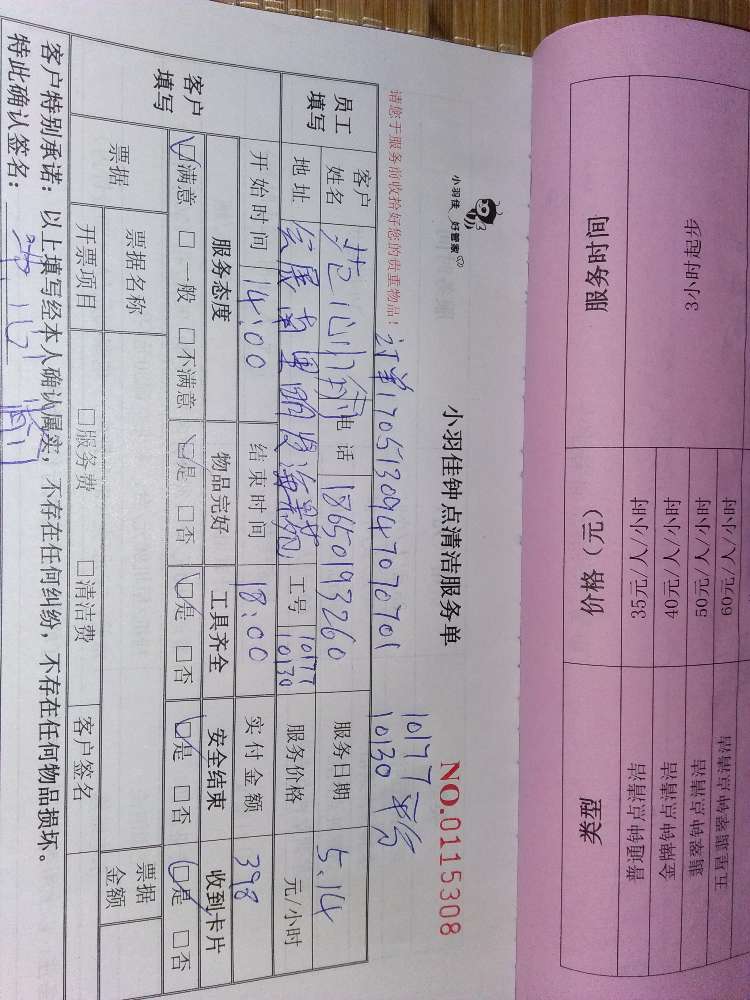 服务时间 价格（元） 类型
3小时起步 35元/人/小时 普通钟点清洁
40元/人/小时 金牌钟点清洁
50元/人/小时 翡翠钟点清洁
60元/人/小时 五星翡翠钟点清洁
小羽佳 好管家
小羽佳钟点清洁服务单 NO.0115308
10177
订单1705130947070701 10130
请您于服务前收拾好您的贵重物品！
员工填写 客户姓名 电话 18650193260 服务日期 5.14
地址 会展南里明发海景苑 工号 10177 10130 服务价格 元/小时
客户填写 开始时间 14:00 结束时间 18:00 实付金额 398
服务态度 物品完好 工具齐全 安全结束 收到卡片
☑满意 □一般 □不满意 ☑是 □否 ☑是 □否 ☑是 □否 ☑是 □否
票据 票据名称 票据金额
开票项目 □服务费 □清洁费 客户签名
客户特别承诺：以上填写经本人确认属实，不存在任何纠纷，不存在任何物品损坏。
特此确认签名：